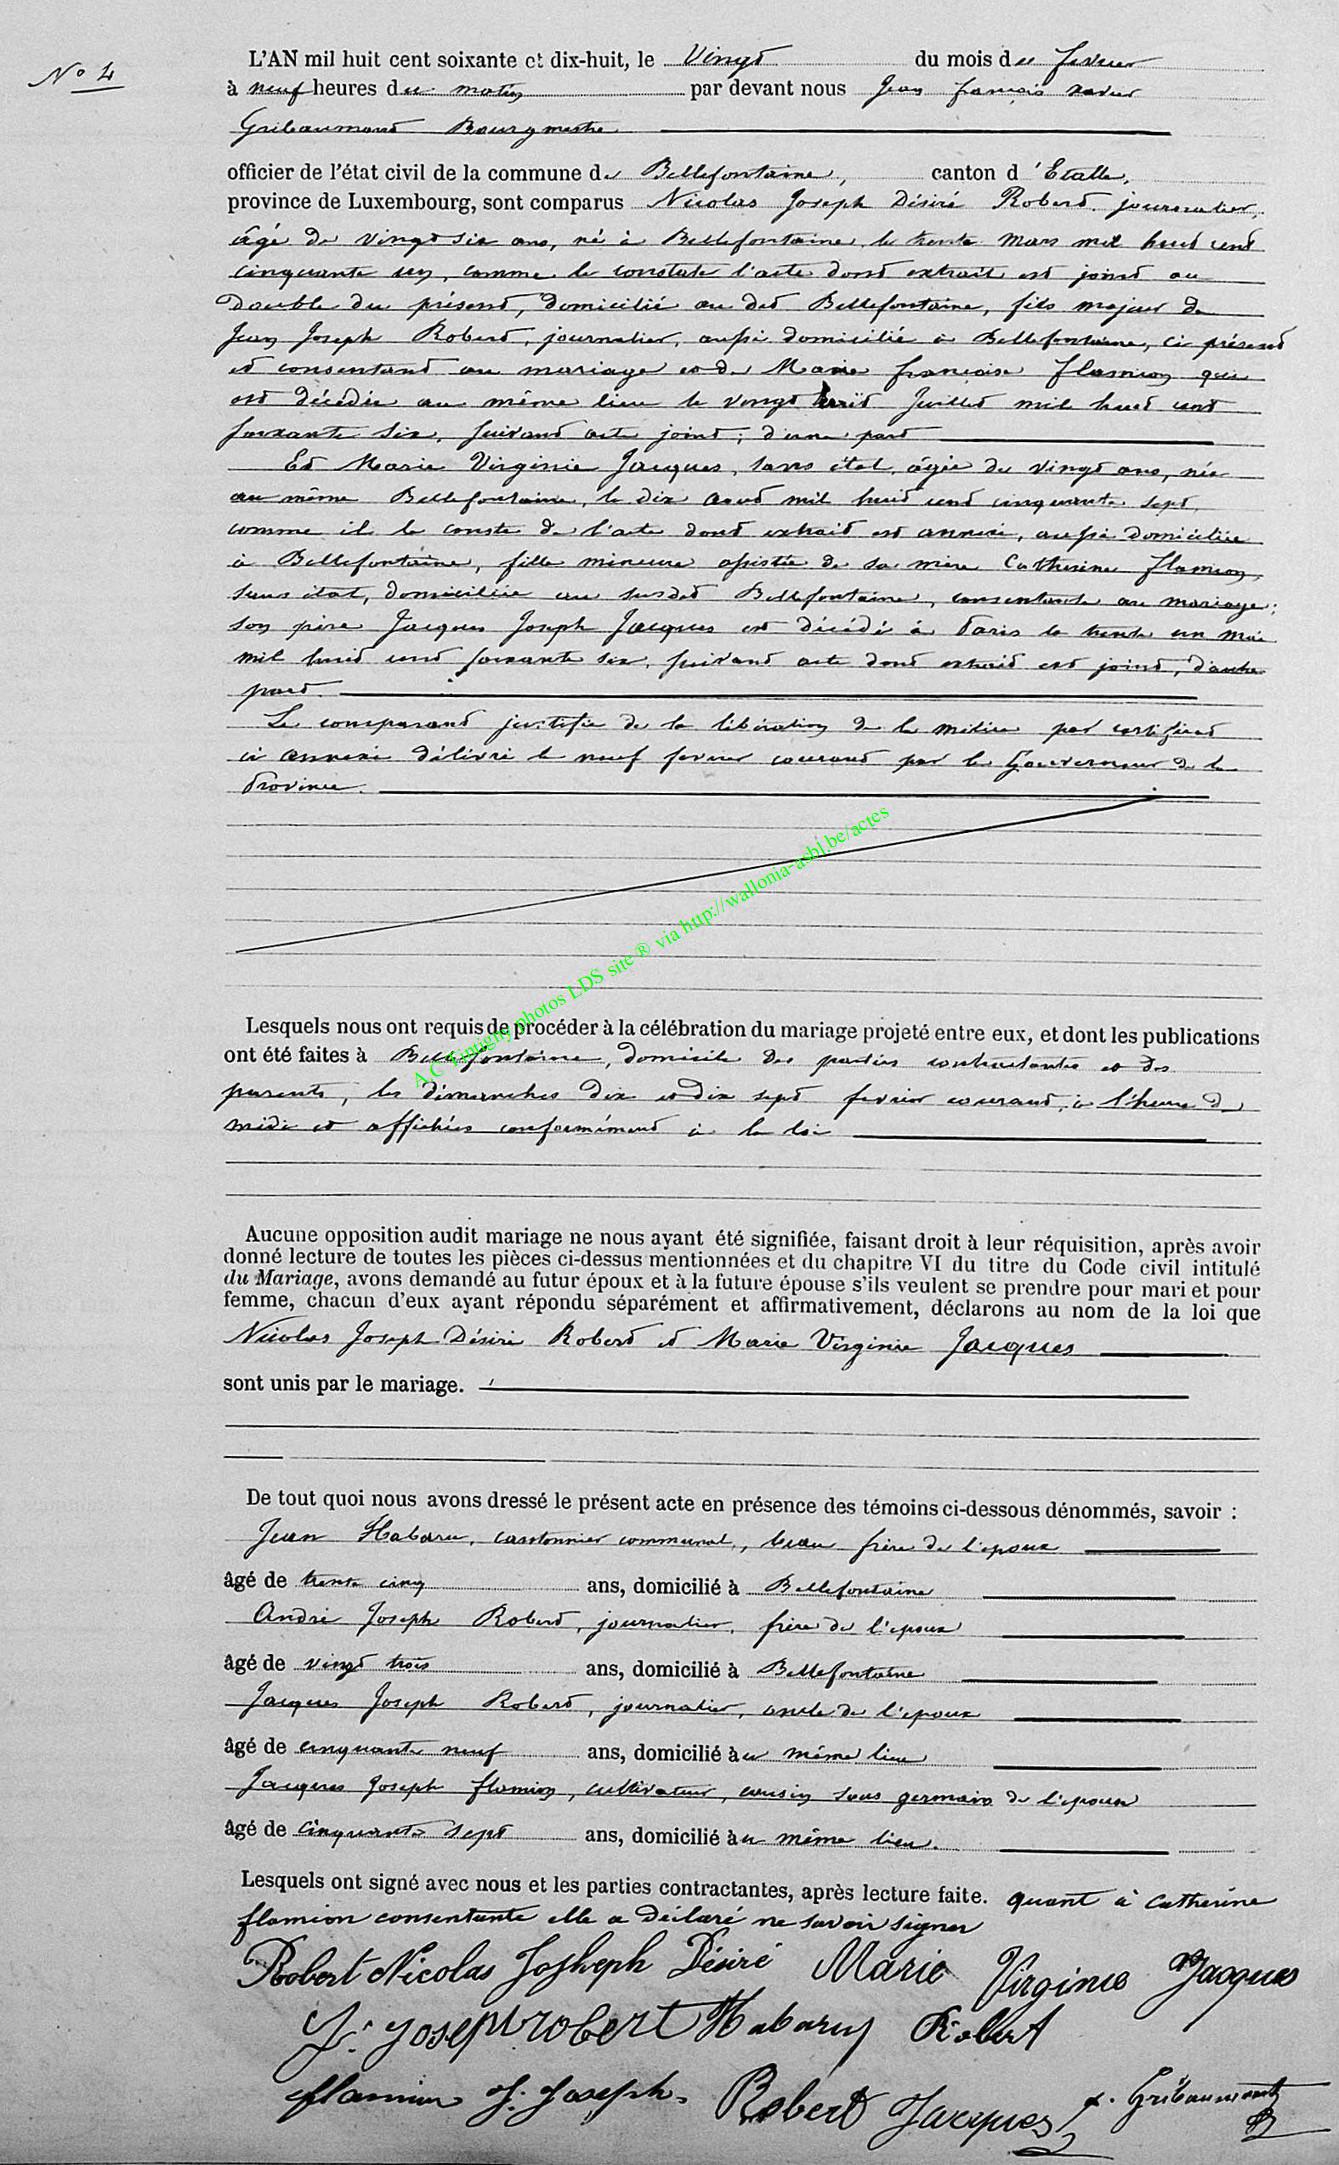 N° 4
L'AN mil huit cent soixante et dix-huit, le Vingt du mois de fevrier
à neuf heures du matin par devant nous Jean françois xavier
Gribaumont Bourgmestre
officier de l'état civil de la commune de Bellefontaine, canton d'Etalle,
province de Luxembourg, sont comparus Nicolas Joseph Désiré Robert, journalier,
âgé de vingt six ans, né à Bellefontaine, le trente Mars mil huit cent
cinquante un, comme le constate l'acte dont extrait est joint au
double du présent, domicilié au dit Bellefontaine, fils majeur de
Jean Joseph Robert, journalier, aussi domicilié à Bellefontaine, ci présent
et consentant au mariage et de Marie françoise flamion qui
est décédée au même lieu le vingt huit Juillet mil huit cent
soixante six, suivant acte joint; d'une part
Et Marie Virginie Jacques, sans état, âgée de vingt ans, née
au même Bellefontaine, le dix aout mil huit cent cinquante sept,
comme il le conste de l'acte dont extrait est annexé, aussi domiciliée
à Bellefontaine, fille mineure assistée de sa mère Catherine flamion,
sans état, domiciliée au susdit Bellefontaine, consentante au mariage;
son père Jacques Joseph Jacques est décédé à Paris le trente un mai
mil huit cent soixante six, suivant acte dont extrait est joint, d'autre
part.
Le comparant justifie de la libération de la milice par certificat
ci annexé délivré le neuf fevrier courant par le Gouverneur de la
Province.
Lesquels nous ont requis de procéder à la célébration du mariage projeté entre eux, et dont les publications
ont été faites à Bellefontaine, domicile des parties contractantes et des
parents, les dimanches dix et dix sept fevrier courant, à l'heure de
midi et affichées conformément à la loi
Aucune opposition audit mariage ne nous ayant été signifiée, faisant droit à leur réquisition, après avoir
donné lecture de toutes les pièces ci-dessus mentionnées et du chapitre VI du titre du Code civil intitulé
du Mariage, avons demandé au futur époux et à la future épouse s'ils veulent se prendre pour mari et pour
femme, chacun d'eux ayant répondu séparément et affirmativement, déclarons au nom de la loi que
Nicolas Joseph Désiré Robert et Marie Virginie Jacques
sont unis par le mariage.
De tout quoi nous avons dressé le présent acte en présence des témoins ci-dessous dénommés, savoir :
Jean Habaru, cantonnier communal, beau frère de l'epoux
âgé de trente cinq ans, domicilié à Bellefontaine
André Joseph Robert, journalier, frère de l'epoux
âgé de vingt trois ans, domicilié à Bellefontaine
Jacques Joseph Robert, journalier, oncle de l'epoux
âgé de cinquante neuf ans, domicilié au même lieu
Jacques Joseph flamion, cultivateur, cousin sous germain de l'epoux
âgé de cinquante sept ans, domicilié au même lieu.
Lesquels ont signé avec nous et les parties contractantes, après lecture faite. quant à Catherine
flamion consentante elle a déclaré ne savoir signer
Robert Nicolas Josheph Désiré Marie Virginie Jacques
J. Joseph robert Habaru Robert
flamion J. Joseph. Robert Jacques x. Gribaumont
A.C Tintigny photos LDS site ® via http://wallonia-asbl.be/actes